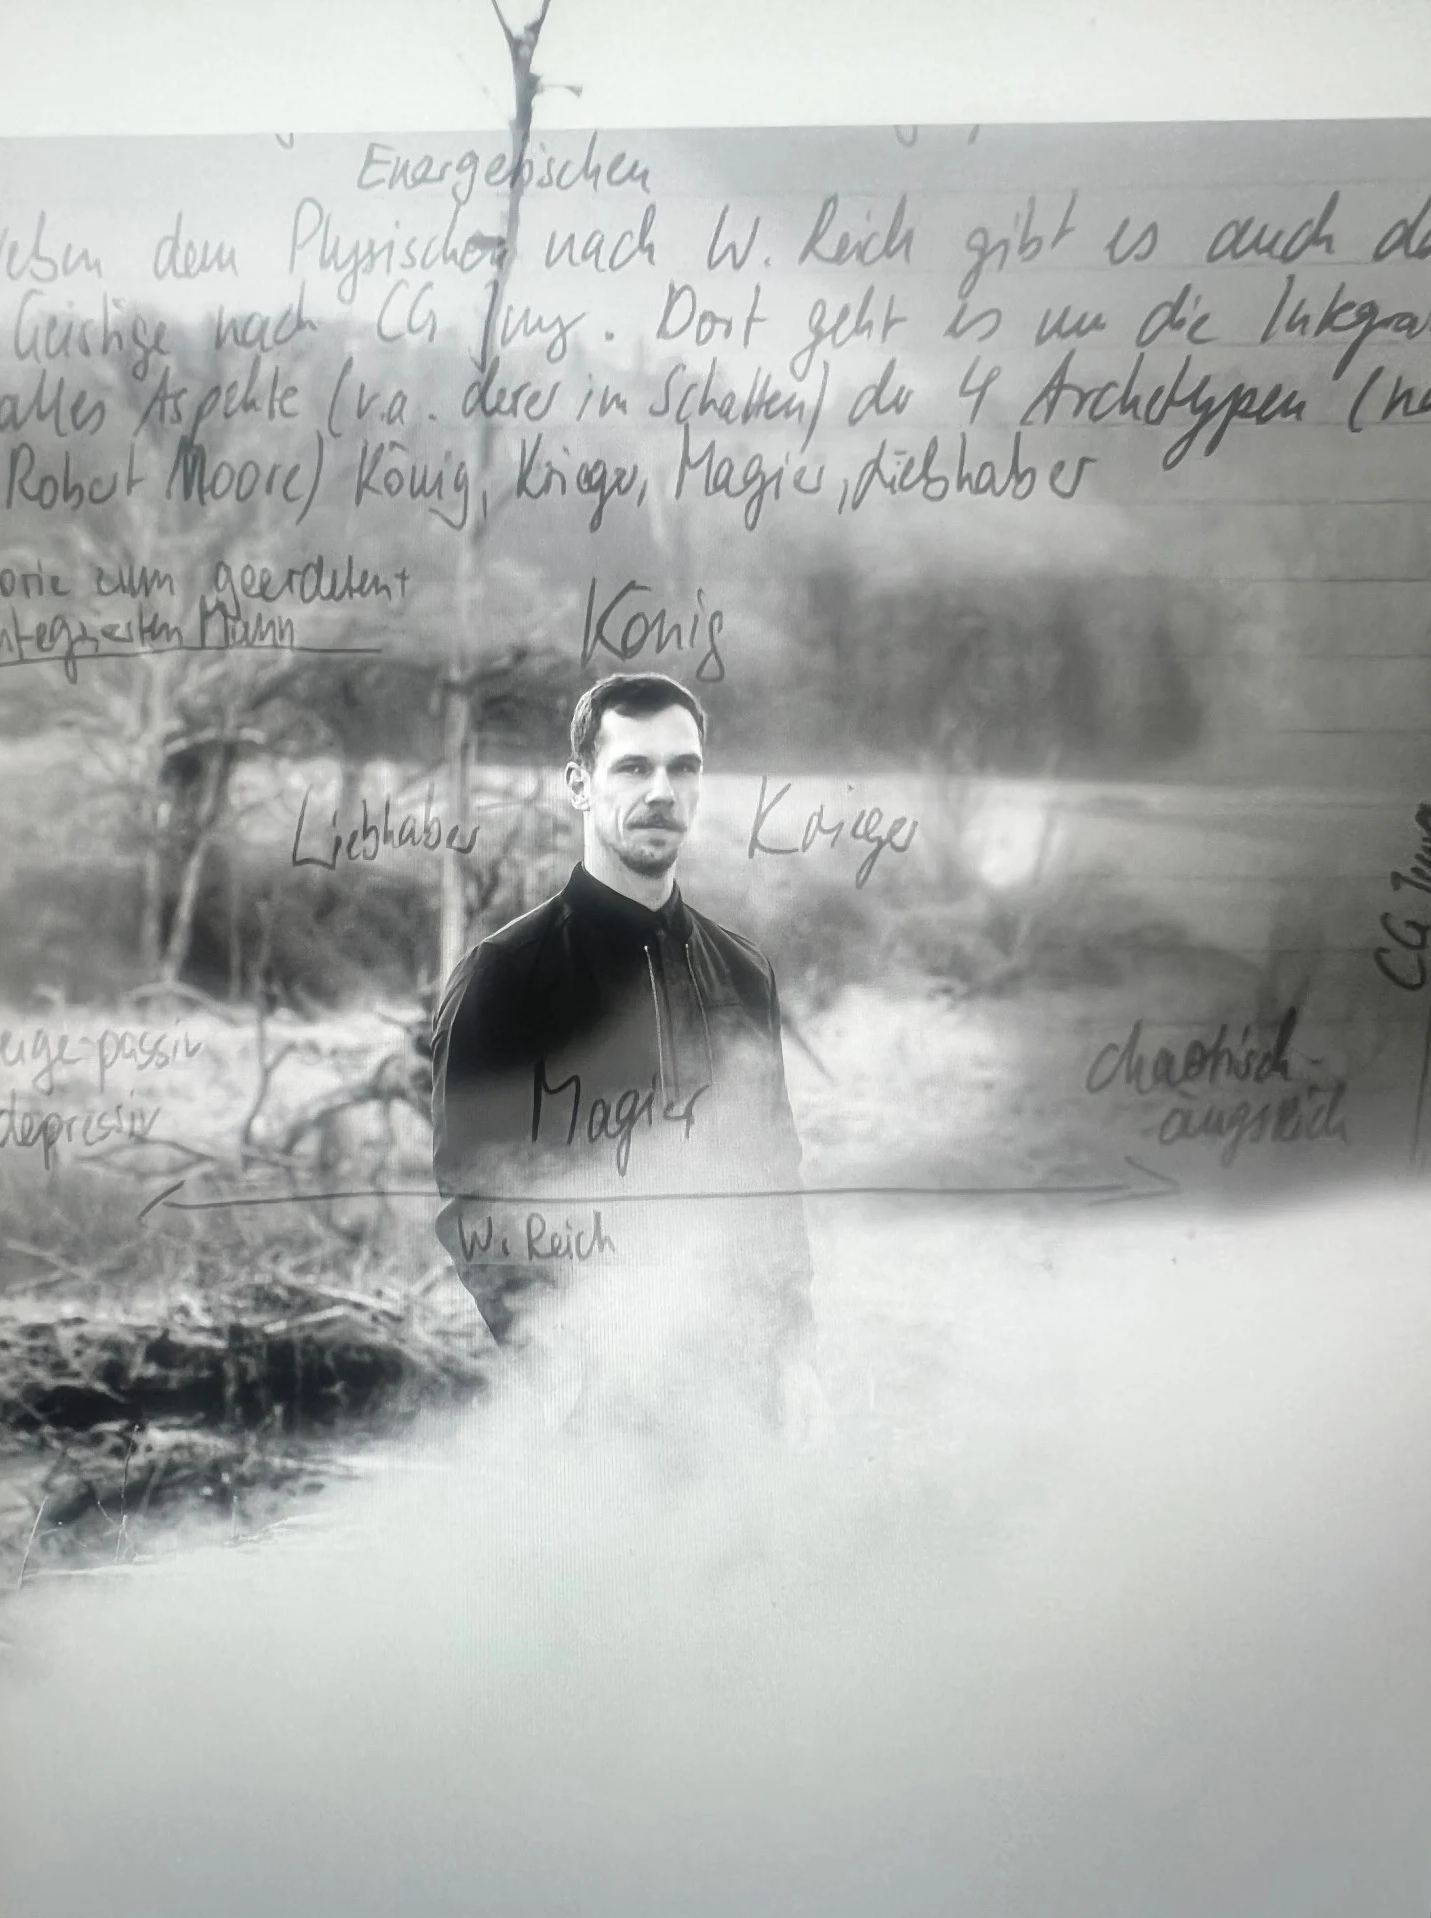 Energetischen
neben dem Physischen nach W. Reich gibt es auch da
Geistige nach CG Jung. Dort geht es um die Integrat
alles Aspekte (v.a. derer im Schatten) der 4 Archetypen (na
Robert Moore) König, Krieger, Magier, Liebhaber
orie zum geerdeten +
integrierten Mann
König
Liebhaber
Krieger
CG Jung
passiv
depressiv
chaotisch-
ängstlich
Magier
W. Reich